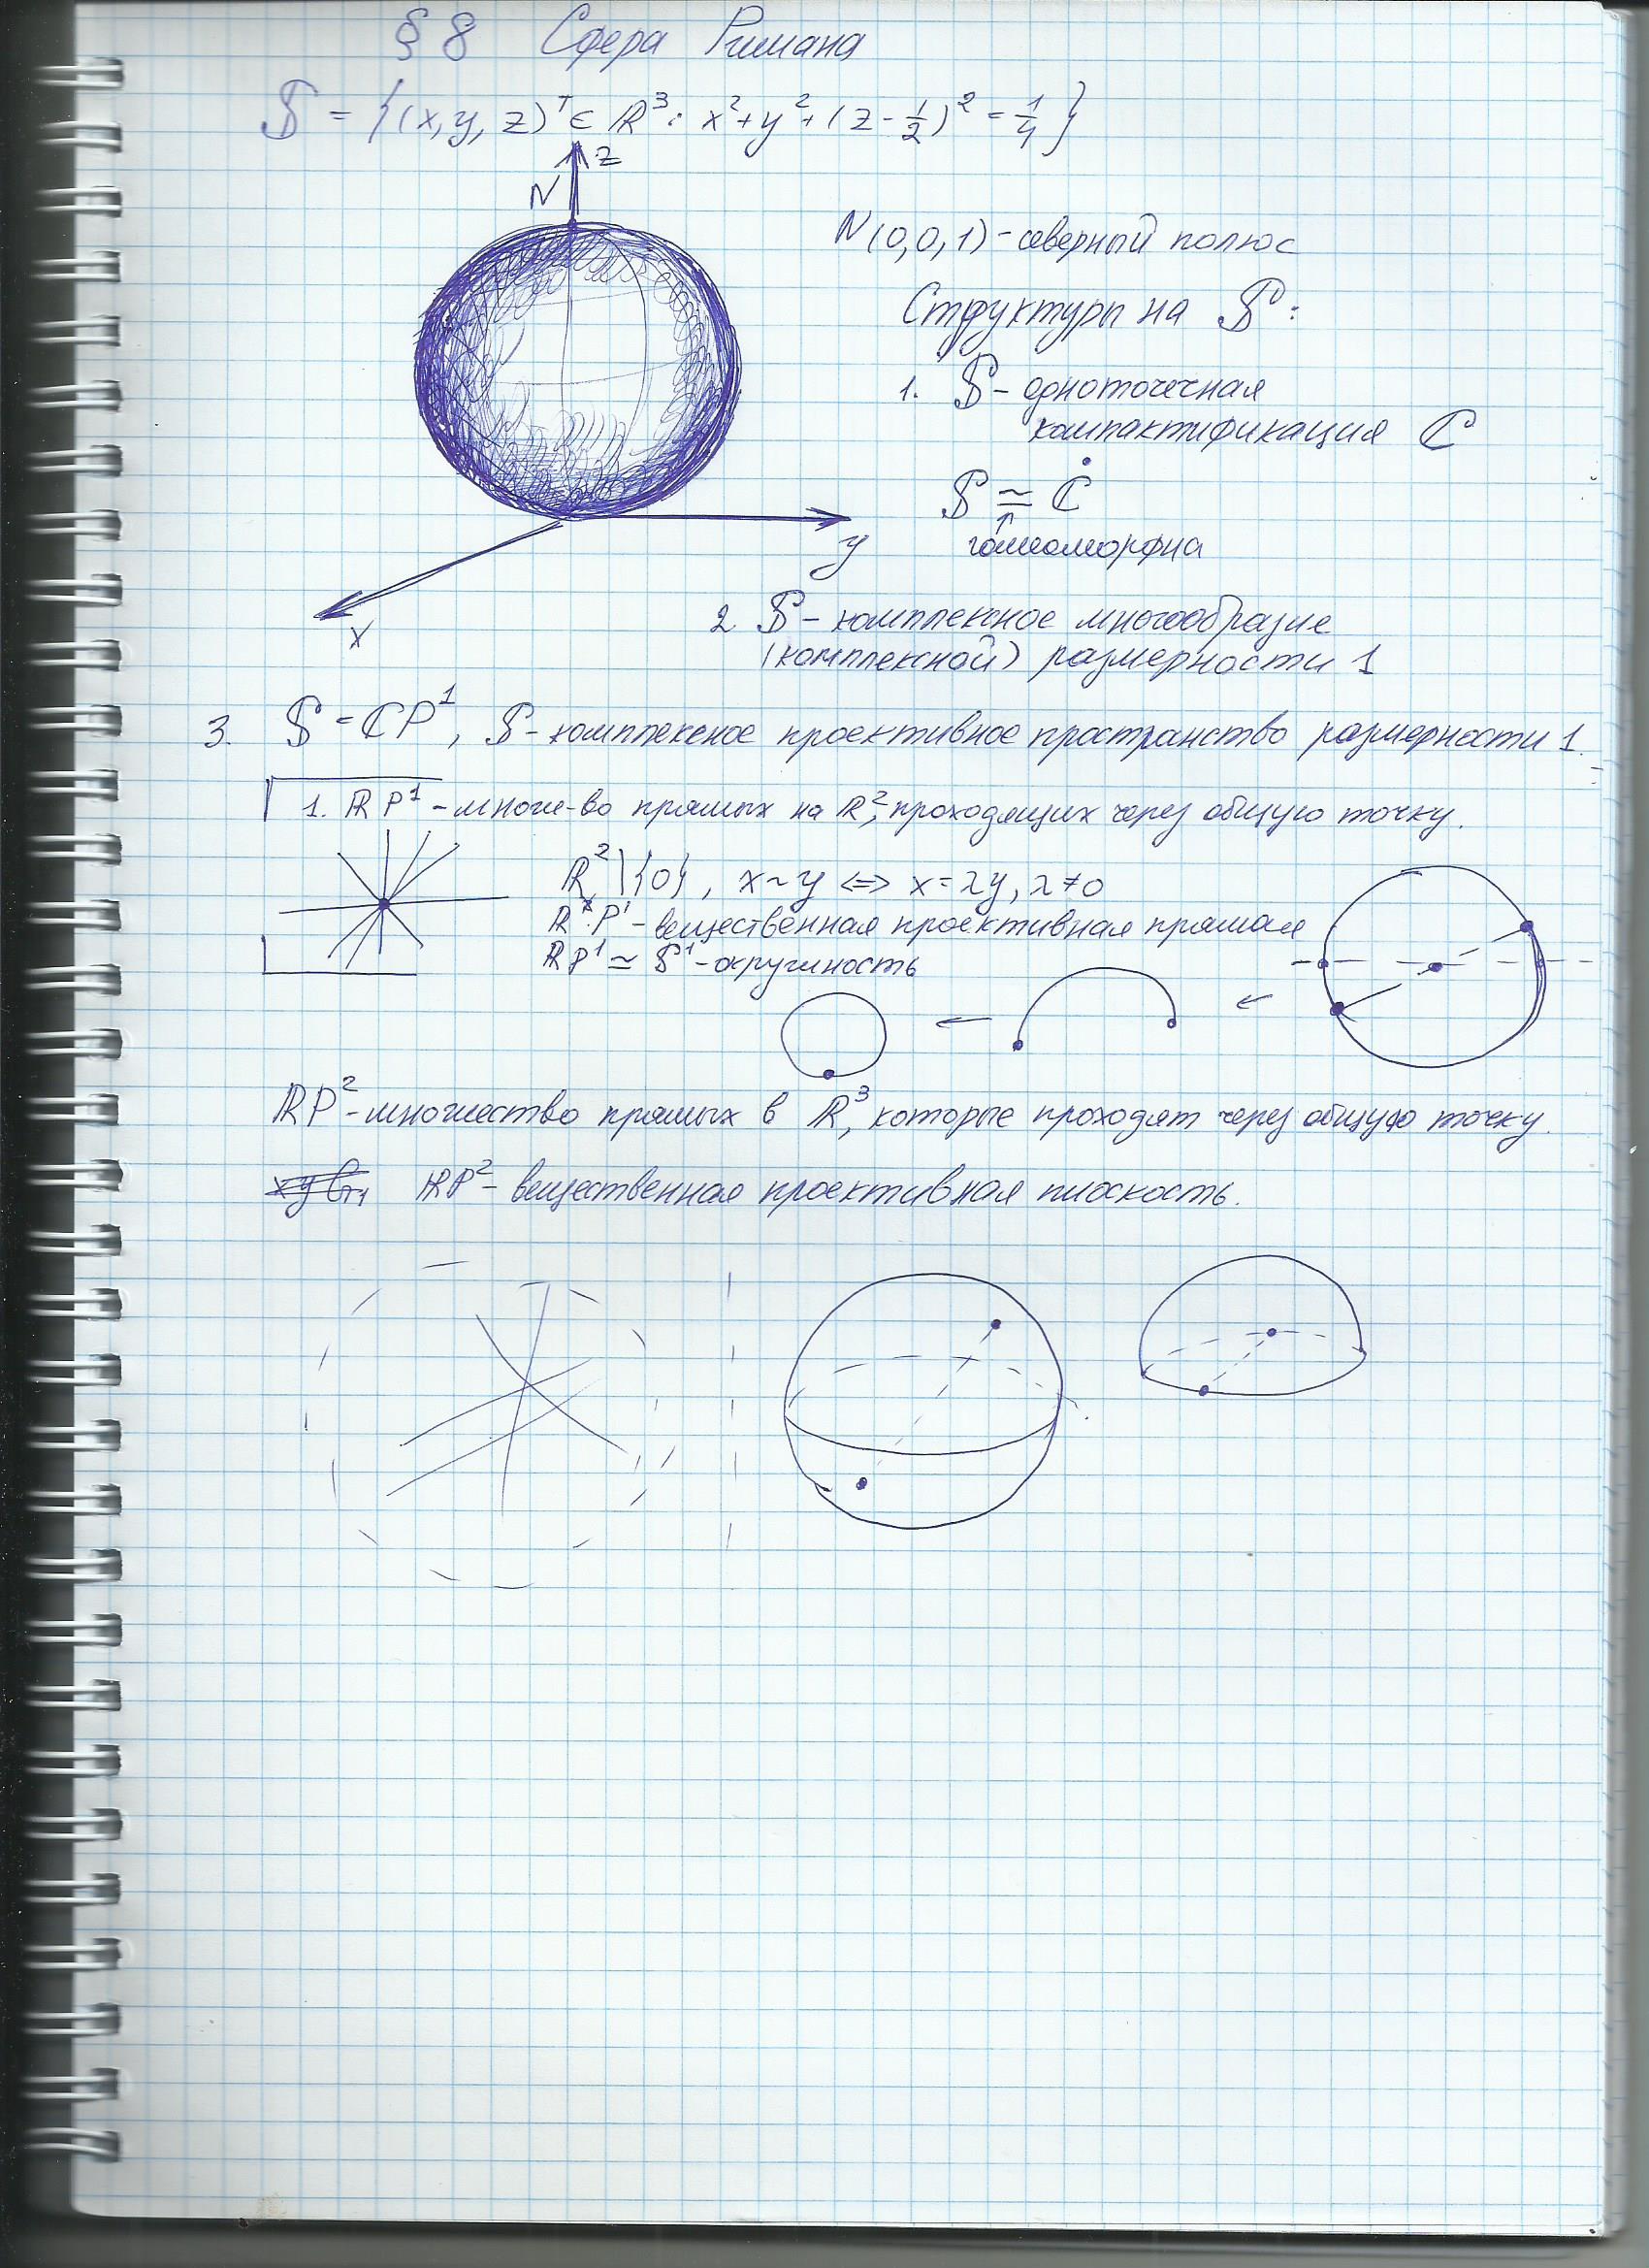 § 8 Сфера Римана
𝕊 = {(x, y, z)ᵀ ∈ ℝ³: x² + y² + (z - 1/2)² = 1/4}
z
N
N(0,0,1) - северный полюс
Структуры на 𝕊:
1. 𝕊 - одноточечная
компактификация ℂ
𝕊 ≃ ℂ̇
↑
гомеоморфна
y
x
2 𝕊 - комплексное многообразие
(комплексной) размерности 1
3. 𝕊 = ℂP¹, 𝕊 - комплексное проективное пространство размерности 1.
1. ℝP¹ - множе-во прямых на ℝ², проходящих через общую точку.
ℝ² \ {0}, x ~ y ⇔ x = λy, λ ≠ 0
ℝP¹ - вещественная проективная прямая
ℝP¹ ≃ 𝕊¹ - окружность
ℝP² - множество прямых в ℝ³, которые проходят через общую точку.
ℝP² - вещественная проективная плоскость.